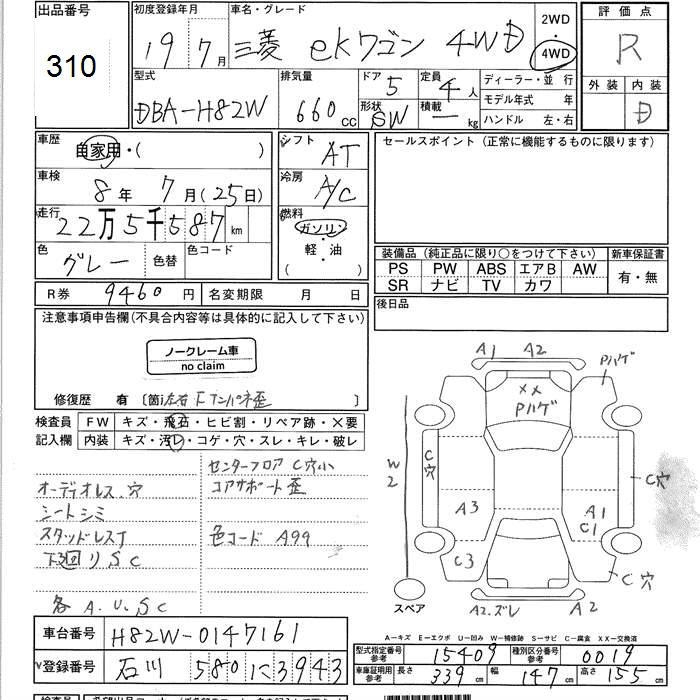 出品番号 初度登録年月 車名・グレード 2WD 評価点
310 19 7月 三菱 ekワゴン 4WD 4WD R
型式 排気量 ドア 5 定員 4人 ディーラー・並行 外装 内装
DBA-H82W 660cc 形状 SW 積載 ー kg モデル年式 年 D
ハンドル 左・右
車歴 自家用・( ) シフト AT セールスポイント (正常に機能するものに限ります)
車検 8年 7月(25日) 冷房 A/C
走行 22万5千587km 燃料 ガソリン
色 グレー 色替 色コード 軽・油 ( )
装備品 (純正品に限り○をつけて下さい) 新車保証書
PS PW ABS エアB AW 有・無
SR ナビ TV カワ
R券 9460円 名変期限 月 日 後日品
注意事項申告欄(不具合内容等は具体的に記入して下さい)
ノークレーム車
no claim
修復歴 有 [箇 左右Fインパネ歪 ]
検査員 FW キズ・飛石・ヒビ割・リペア跡・×要
記入欄 内装 キズ・汚レ・コゲ・穴・スレ・キレ・破レ
センターフロア C穴小
オーディオレス.穴 コアサポート歪
シートシミ
スタッドレスT 色コード A99
下3回り S C
各 A.U.S C
A1 A2 Pハゲ
XX
Pハゲ
W2 C穴 C穴
A3 A1
C1
C3 C穴
スペア A2.ズレ A2
車台番号 H82W-0147161
A-キズ E-エクボ U-凹み W-補修跡 S-サビ C-腐食 XX-交換済
型式指定番号 参考 15409 種別区分番号 参考 0019
登録番号 石川 580 に 3943
車庫証明用 参考 長さ 339cm 幅 147cm 高さ 155cm